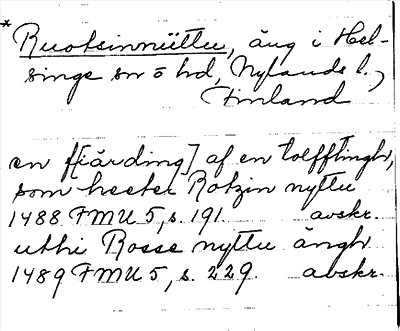 * Ruotsinniittu, äng i Hel-
singe sn o hd, Nylands l.,
Finland
en f[iärding] af en tolfftingh,
som heeter Rotzin nyttu
1488 FMU 5, s. 191. avskr.
uthi Rosse nyttu ängh
1489 FMU 5, s. 229. avskr.